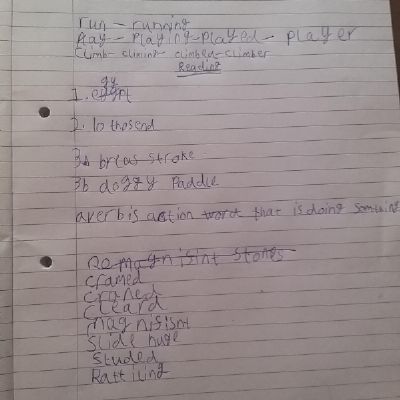 run - running
Play - Playing - Played - Player
Climb - climing - climbed - climber
Reading
1. egypt
2. 10 thosend
3a breas stroke
3b doggy Paddle
a verb is action word that is doing something
magnisint stones
cramed
craned
cleard
magnifisnt
Slide huge
Studed
Rattiling